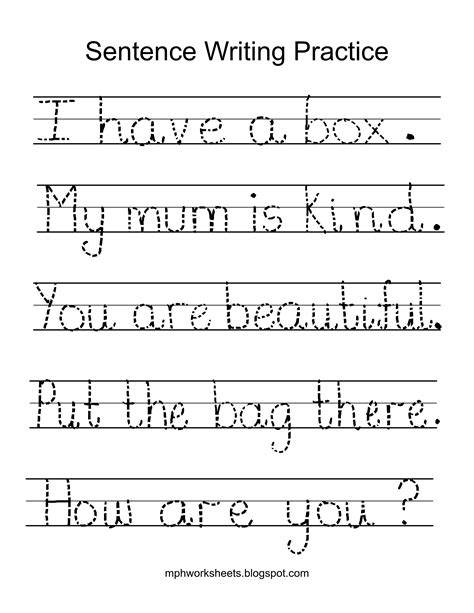 Sentence Writing Practice
I have a box.
My mum is kind.
You are beautiful.
Put the bag there.
How are you?
mphworksheets.blogspot.com